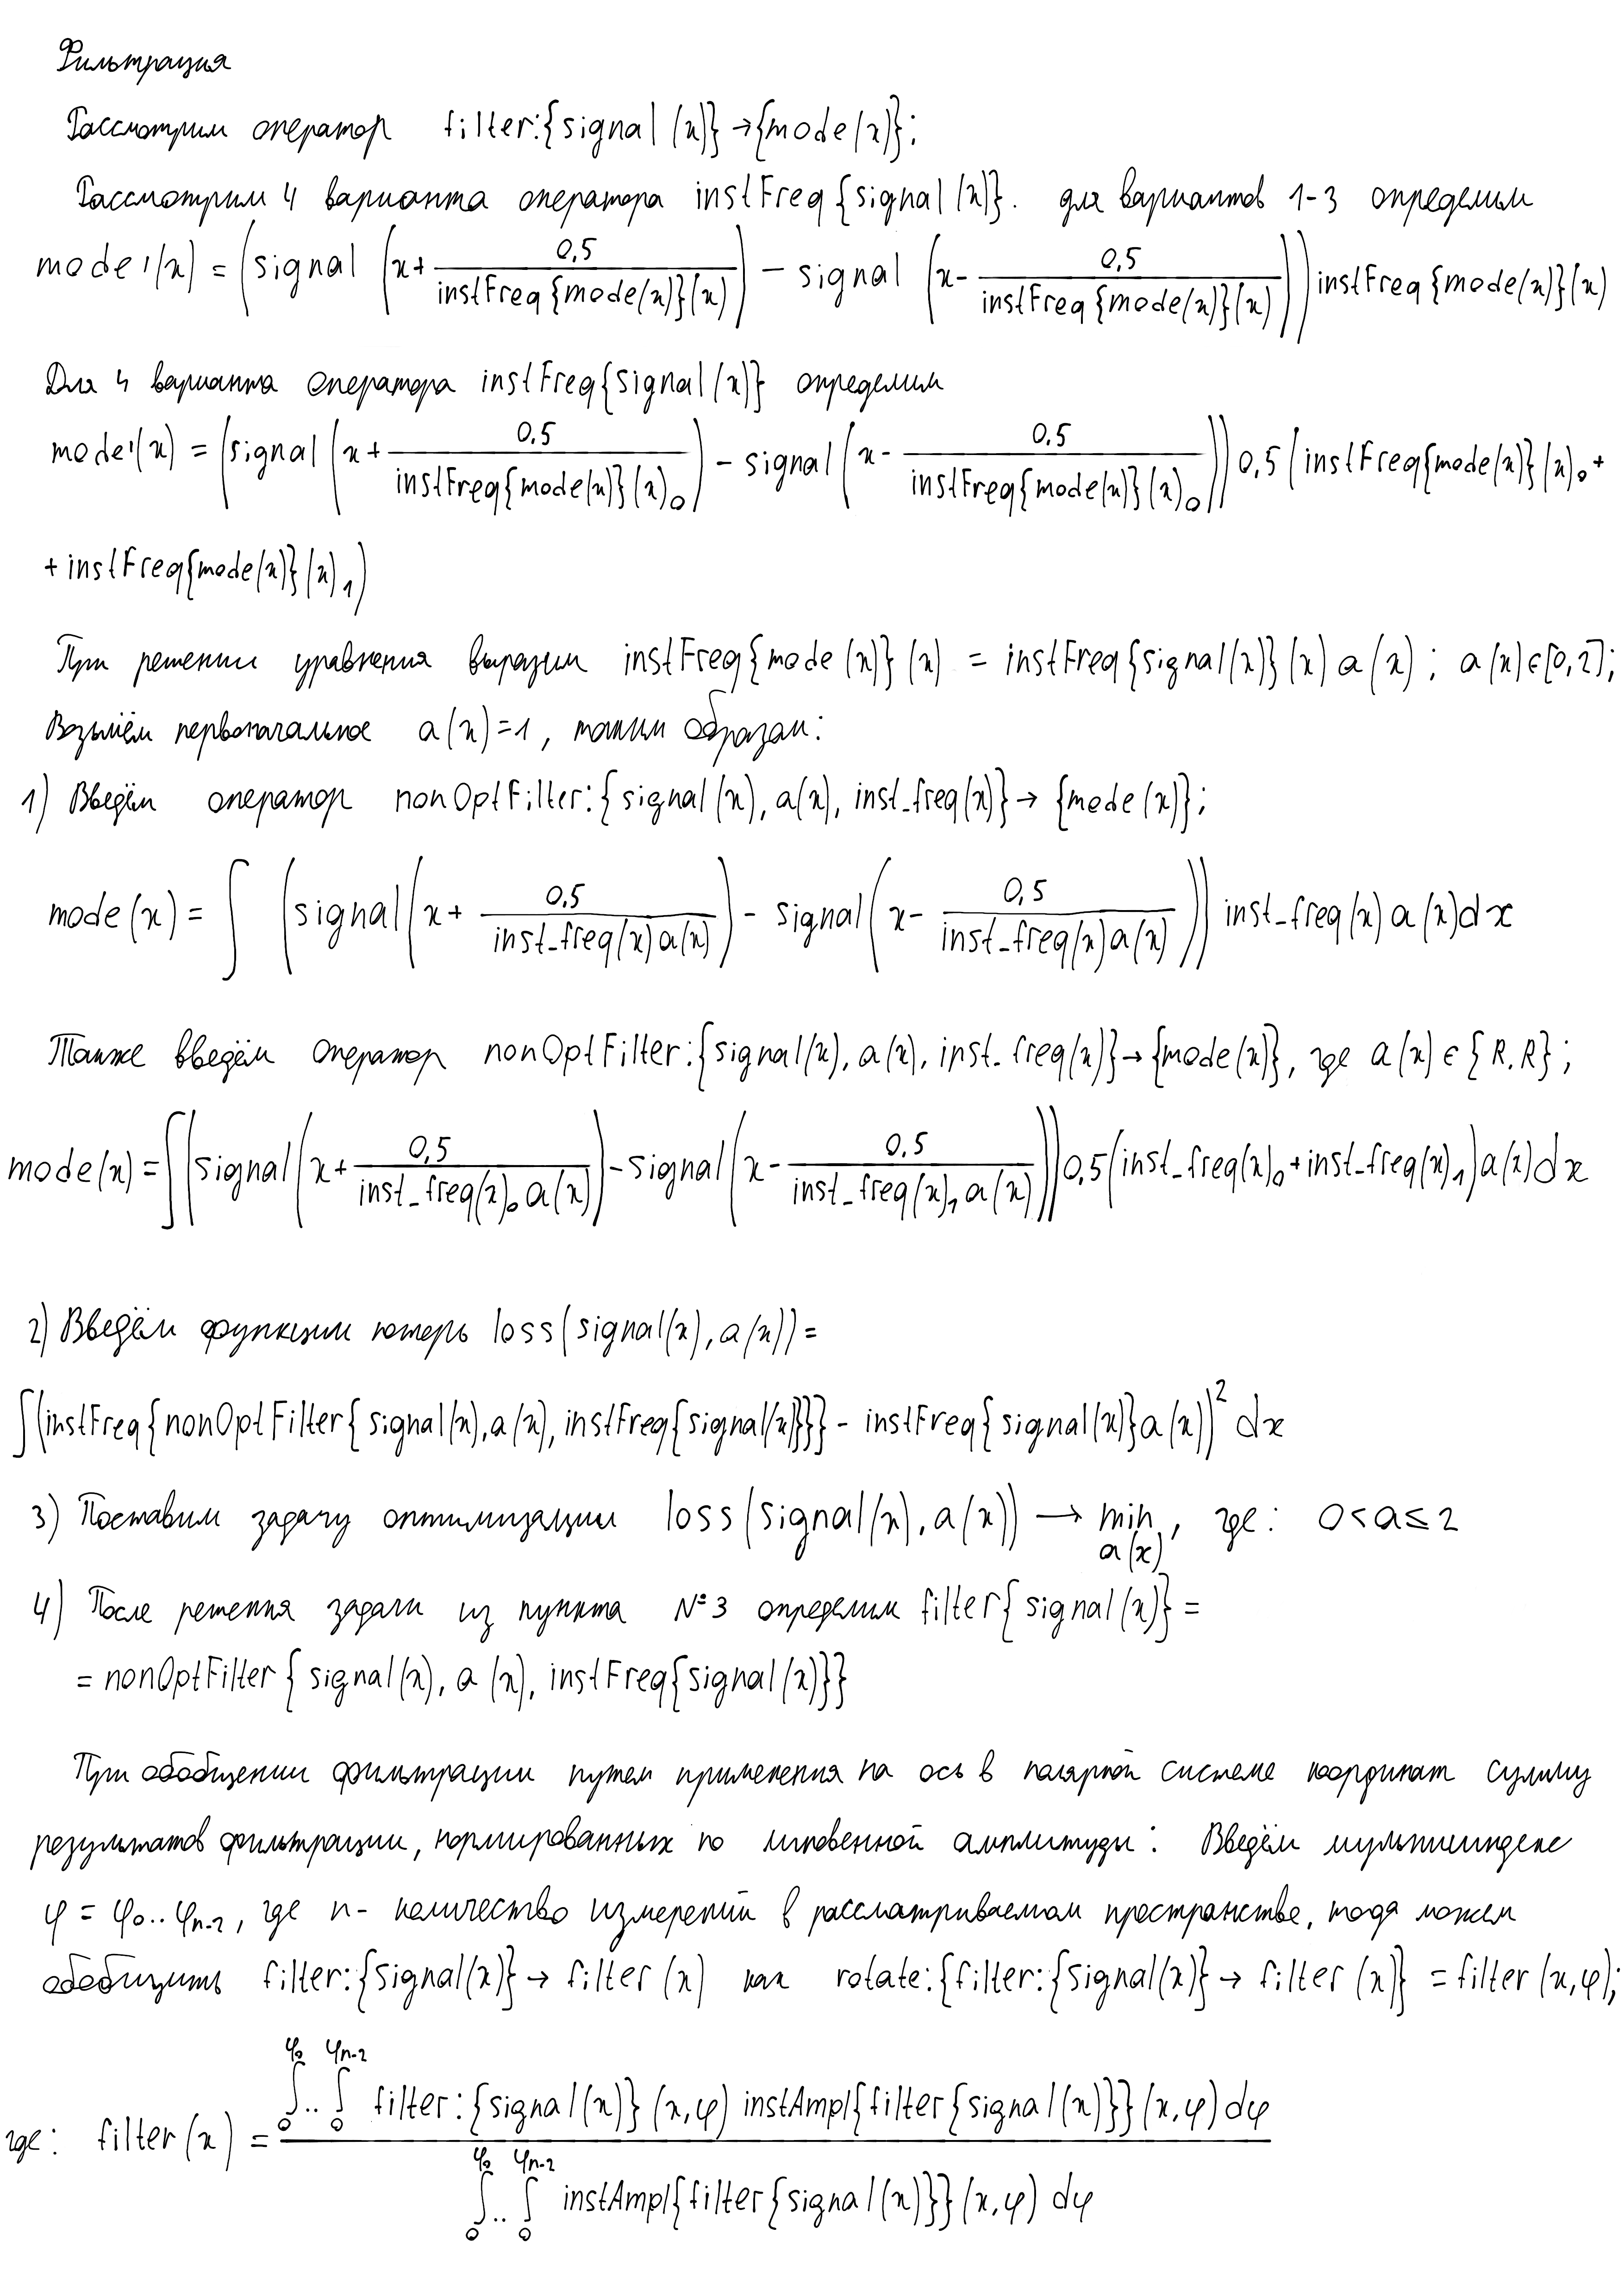 Фильтрация
Рассмотрим оператор filter:{signal(x)}→{mode(x)};
Рассмотрим 4 варианта оператора instFreq{signal(x)}. для вариантов 1-3 определим
mode'(x) = (signal(x + 0,5/instFreq{mode(x)}(x)) - signal(x - 0,5/instFreq{mode(x)}(x))) instFreq{mode(x)}(x)
Для 4 варианта оператора instFreq{signal(x)} определим
mode'(x) = (signal(x + 0,5/instFreq{mode(x)}(x)₀) - signal(x - 0,5/instFreq{mode(x)}(x)₀)) 0,5(instFreq{mode(x)}(x)₀ +
+ instFreq{mode(x)}(x)₁)
При решении уравнения выразим instFreq{mode(x)}(x) = instFreq{signal(x)}(x) a(x); a(x)∈(0,2];
Возьмём первоначальное a(x)=1, таким образом:
1) Введём оператор nonOptFilter:{signal(x), a(x), inst_freq(x)} → {mode(x)};
mode(x) = ∫ (signal(x + 0,5/inst_freq(x)a(x)) - signal(x - 0,5/inst_freq(x)a(x))) inst_freq(x) a(x)dx
Также введём оператор nonOptFilter:{signal(x), a(x), inst_freq(x)}→{mode(x)}, где a(x)∈{R,R};
mode(x) = ∫(signal(x + 0,5/inst_freq(x)₀a(x)) - signal(x - 0,5/inst_freq(x)₁a(x))) 0,5(inst_freq(x)₀+inst_freq(x)₁)a(x)dx
2) Введём функции потерь loss(signal(x), a(x)) =
∫(instFreq{nonOptFilter{signal(x), a(x), instFreq{signal(x)}}} - instFreq{signal(x)}a(x))² dx
3) Поставим задачу оптимизации loss(signal(x), a(x)) → min a(x), где: 0<a≤2
4) После решения задачи из пункта №3 определим filter{signal(x)} =
= nonOptFilter{signal(x), a(x), instFreq{signal(x)}}
При обобщении фильтрации путем применения на ось в полярной системе координат сумму
результатов фильтрации, нормированных по мгновенной амплитуды: Введём мультииндекс
φ = φ₀..φₙ₋₂, где n- количество измерений в рассматриваемом пространстве, тогда можем
обобщить filter:{signal(x)}→ filter(x) как rotate:{filter:{signal(x)}→ filter(x)} = filter(x,φ);
где: filter(x) = ∫₀^φ₂..∫₀^φₙ₋₂ filter:{signal(x)}(x,φ) instAmpl{filter{signal(x)}}(x,φ)dφ / ∫₀^φ₂..∫₀^φₙ₋₂ instAmpl{filter{signal(x)}}(x,φ) dφ